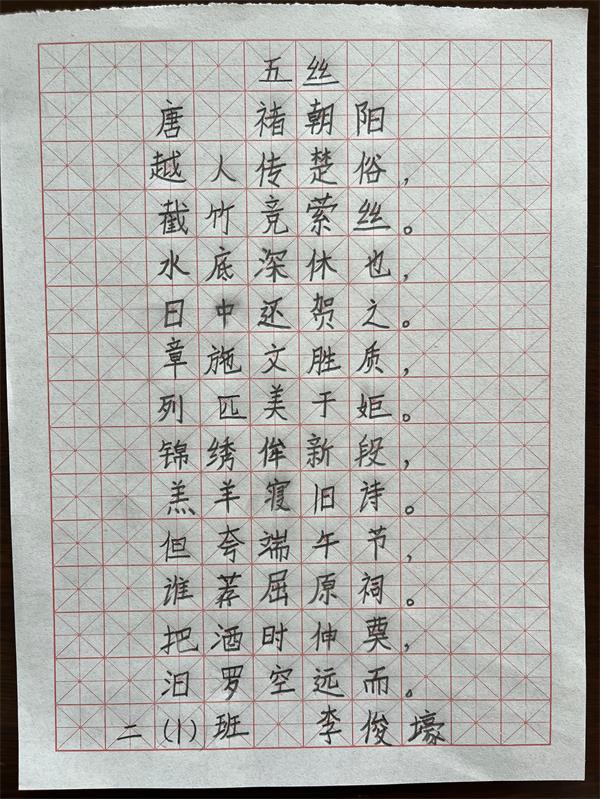 五丝
唐 褚朝阳
越人传楚俗，
截竹竞萦丝。
水底深休也，
日中还贺之。
章施文胜质，
列匹美于姬。
锦绣侔新段，
羔羊寝旧诗。
但夸端午节，
谁荐屈原祠。
把酒时伸奠，
汨罗空远而。
二(1)班 李俊壕